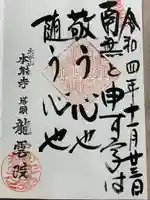 令和四年十一月廿三日
南無と申す字は
敬う心也
随う心也
大本山
本能寺
塔頭
龍雲院